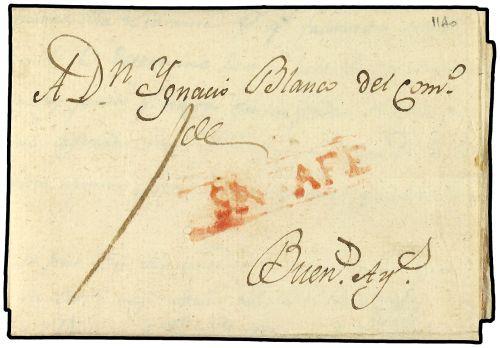 11Ao
A Dn. Ygnacio Blanco del Com.o
de
SANTAFE
Buen.s Ay.s